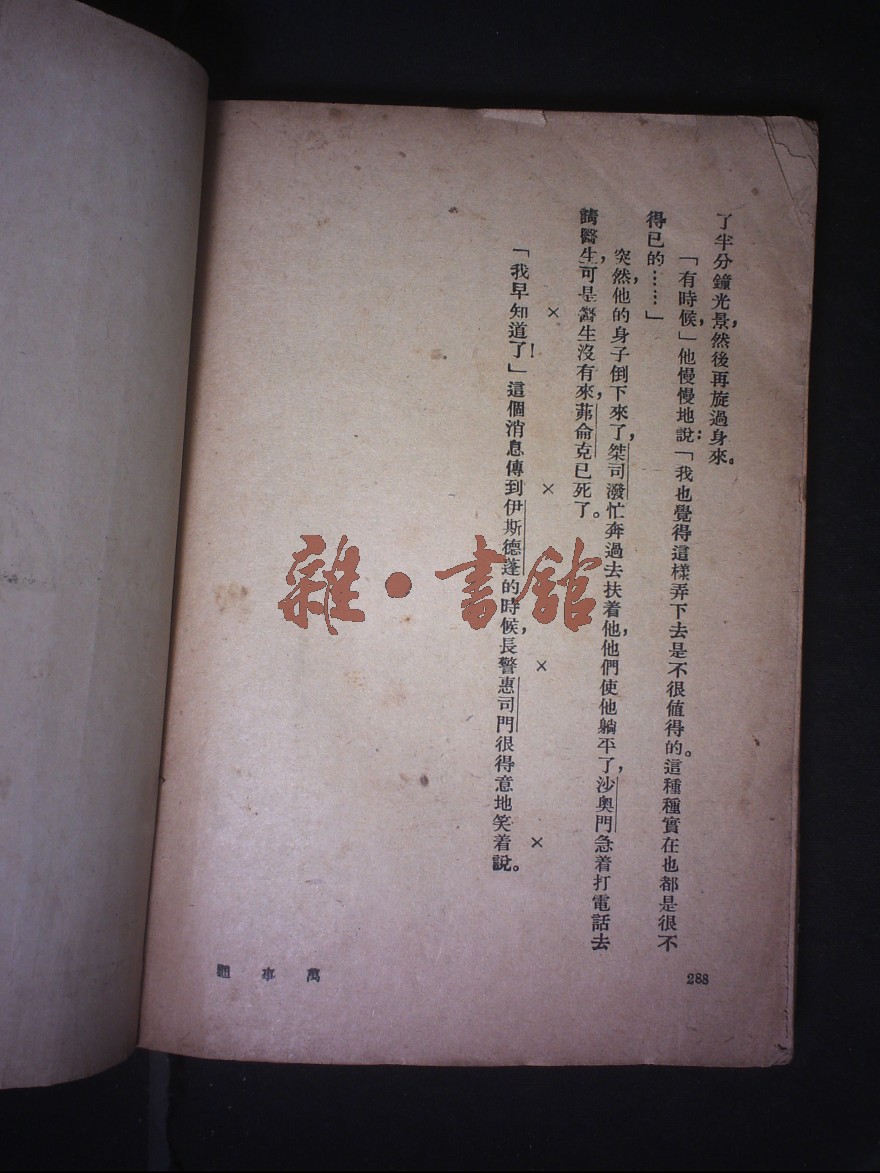 了半分鐘光景,然後再旋過身來。
「有時候,」他慢慢地說:「我也覺得這樣弄下去是不很值得的。這種種實在也都是很不
得已的……」
突然,他的身子倒下來了,桀司潑忙奔過去扶着他,他們使他躺平了,沙奧門急着打電話去
請醫生,可是醫生沒有來,茀侖克已死了。
× × × ×
「我早知道了!」這個消息傳到伊斯德蓬的時候,長警惠司門很得意地笑着說。
萬事通
288
雜·書館